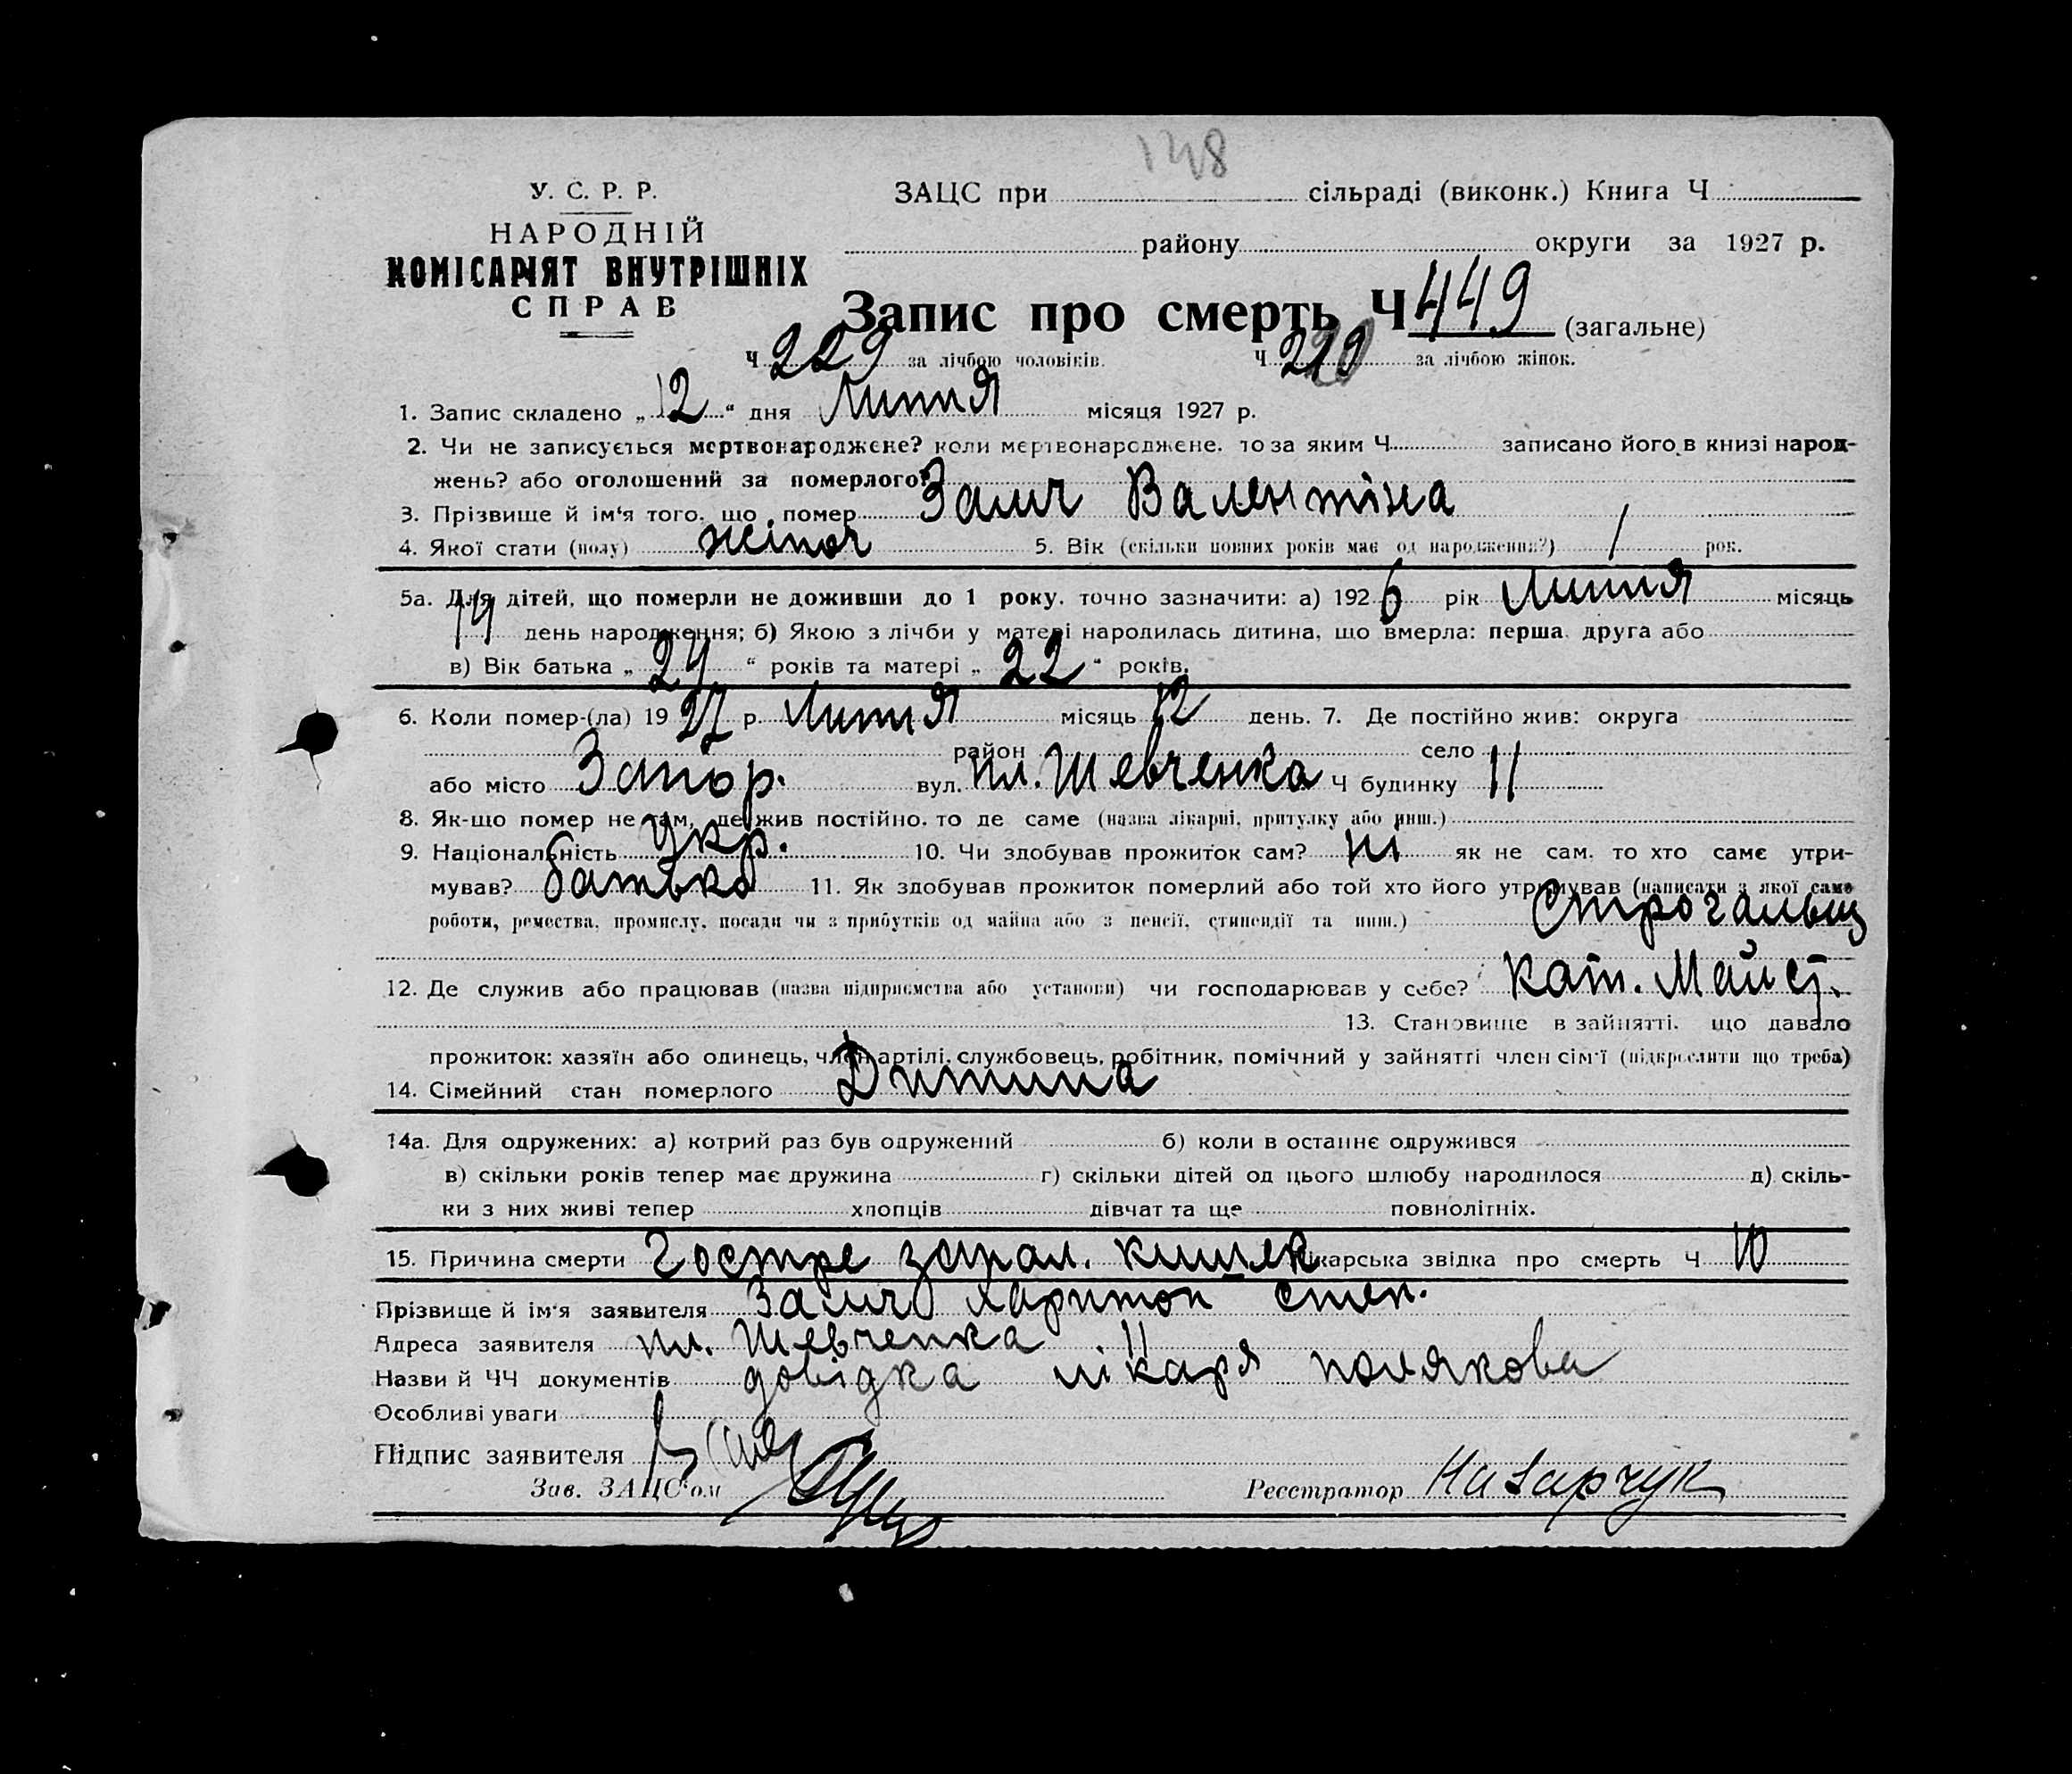 148
У. С. Р. Р.
НАРОДНІЙ
КОМІСАРІЯТ ВНУТРІШНІХ
СПРАВ
ЗАЦС при сільраді (виконк.) Книга Ч
району округи за 1927 р.
Запис про смерть Ч 449 (загальне)
Ч 229 за лічбою чоловіків. Ч 220 за лічбою жінок.
1. Запис складено „12“ дня Липня місяця 1927 р.
2. Чи не записується мертвонароджене? коли мертвонароджене, то за яким Ч записано його в книзі народ-
жень? або оголошений за померлого?
3. Прізвище й ім'я того, що помер Заич Валентіна
4. Якої статі (полу) жіноч 5. Вік (скільки повних років має од народження?) 1 рок.
5а. Для дітей, що померли не доживши до 1 року, точно зазначити: а) 1926 рік Липня місяць
14 день народження; б) Якою з лічби у матері народилась дитина, що вмерла: перша, друга або
в) Вік батька „24“ років та матері „22“ років.
6. Коли помер-(ла) 1927 р. Липня місяць 12 день. 7. Де постійно жив: округа
район село
або місто Запор. вул. пл. Шевченка Ч будинку 11
8. Як-що помер не там, де жив постійно, то де саме (назва лікарні, притулку або инш.)
9. Національність Укр. 10. Чи здобував прожиток сам? ні як не сам, то хто саме утри-
мував? батько 11. Як здобував прожиток померлий або той хто його утримував (написати з якої саме
роботи, ремества, промислу, посади чи з прибутків од майна або з пенсії, стипендії та инш.) Строгальщ
12. Де служив або працював (назва підприємства або установи) чи господарював у себе? Кат. Майст.
13. Становище в зайнятті, що давало
прожиток: хазяїн або одинець, член артілі, службовець, робітник, помічний у зайнятті член сім'ї (підкреслити що треба)
14. Сімейний стан померлого Дитина
14а. Для одружених: а) котрий раз був одружений б) коли в останнє одружився
в) скільки років тепер має дружина г) скільки дітей од цього шлюбу народилося д) скіль-
ки з них живі тепер хлопців дівчат та ще повнолітніх.
15. Причина смерти Гостре запал. кишек Лікарська звідка про смерть Ч 10
Прізвище й ім'я заявителя Заич Харитон Степ.
Адреса заявителя пл. Шевченка 11
Назви й ЧЧ документів довідка лікаря полякова
Особливі уваги
Підпис заявителя
Зав. ЗАЦС'ом Реєстратор Назарчук